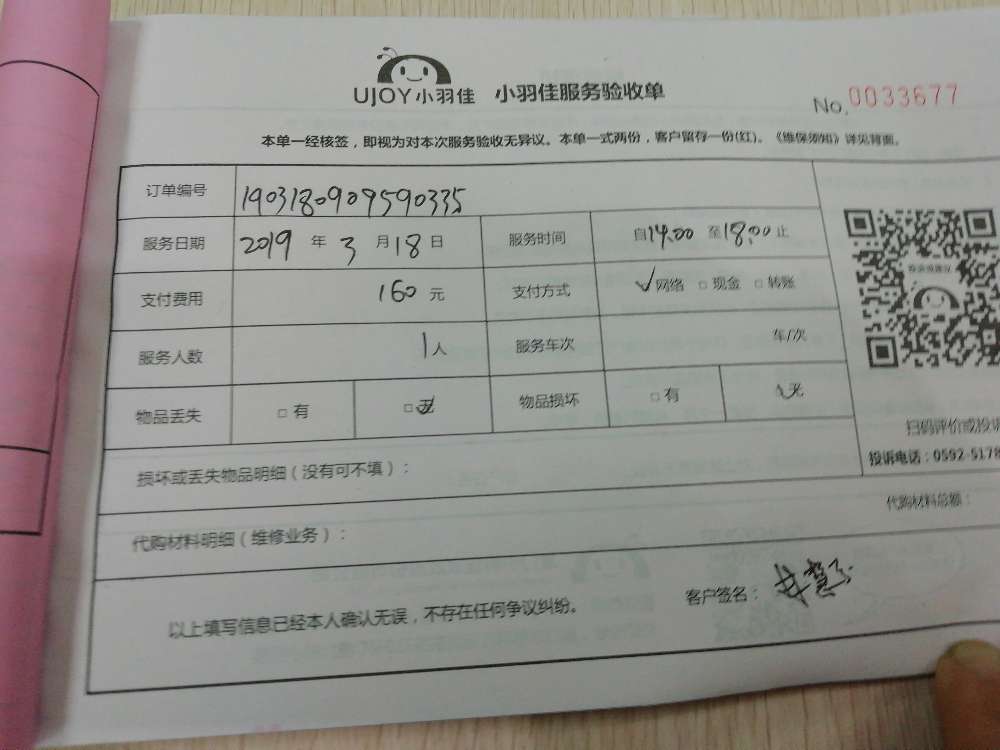 UJOY小羽佳 小羽佳服务验收单 No. 0033677
本单一经核签，即视为对本次服务验收无异议。本单一式两份，客户留存一份(红)。《维保须知》详见背面。
订单编号 1903180909590335
服务日期 2019 年 3 月 18 日 服务时间 自 14.00 至 18.00 止
支付费用 160 元 支付方式 ✓网络 □ 现金 □ 转账
服务人数 1人 服务车次 车/次
物品丢失 □ 有 □无 物品损坏 □ 有 无
扫码评价或投诉
投诉电话：0592-5178
损坏或丢失物品明细（没有可不填）：
代购材料明细（维修业务）： 代购材料总额：
以上填写信息已经本人确认无误，不存在任何争议纠纷。 客户签名：